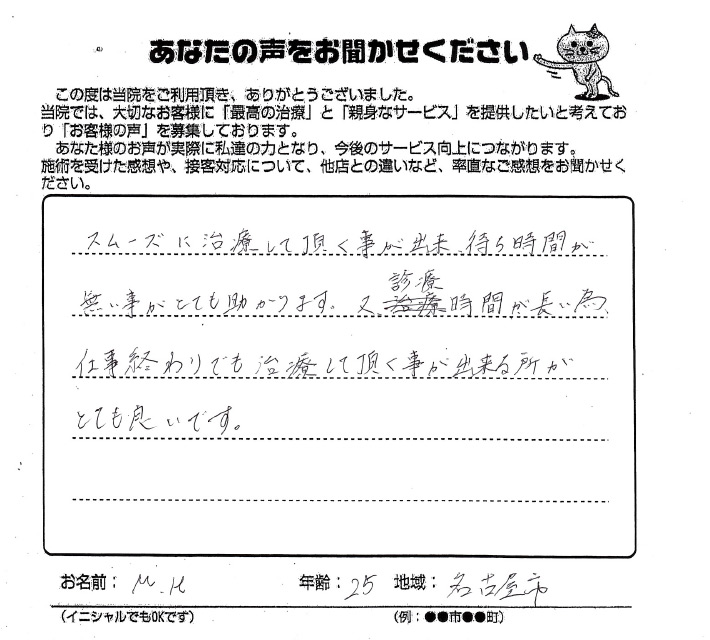 あなたの声をお聞かせください
この度は当院をご利用頂き、ありがとうございました。
当院では、大切なお客様に「最高の治療」と「親身なサービス」を提供したいと考えてお
り「お客様の声」を募集しております。
あなた様のお声が実際に私達の力となり、今後のサービス向上につながります。
施術を受けた感想や、接客対応について、他店との違いなど、率直なご感想をお聞かせく
ださい。
スムーズに治療して頂く事が出来、待ち時間が
診療
無い事がとても助かります。又、治療時間が長い為、
仕事終わりでも治療して頂く事が出来る所が
とても良いです。
お名前： M.H 年齢：25 地域： 名古屋市
（イニシャルでもOKです） （例：●●市●●町）